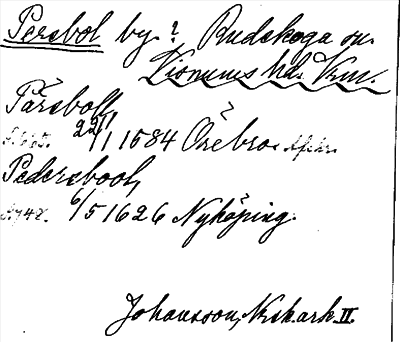 Persbol by? Rudskoga sn.
Visnums hd. Vrm.
Pärsboll,
22/1 1584 Örebro
Pedersbool,
6/5 1626 Nyköping.
Johansson, Nkskark. II.